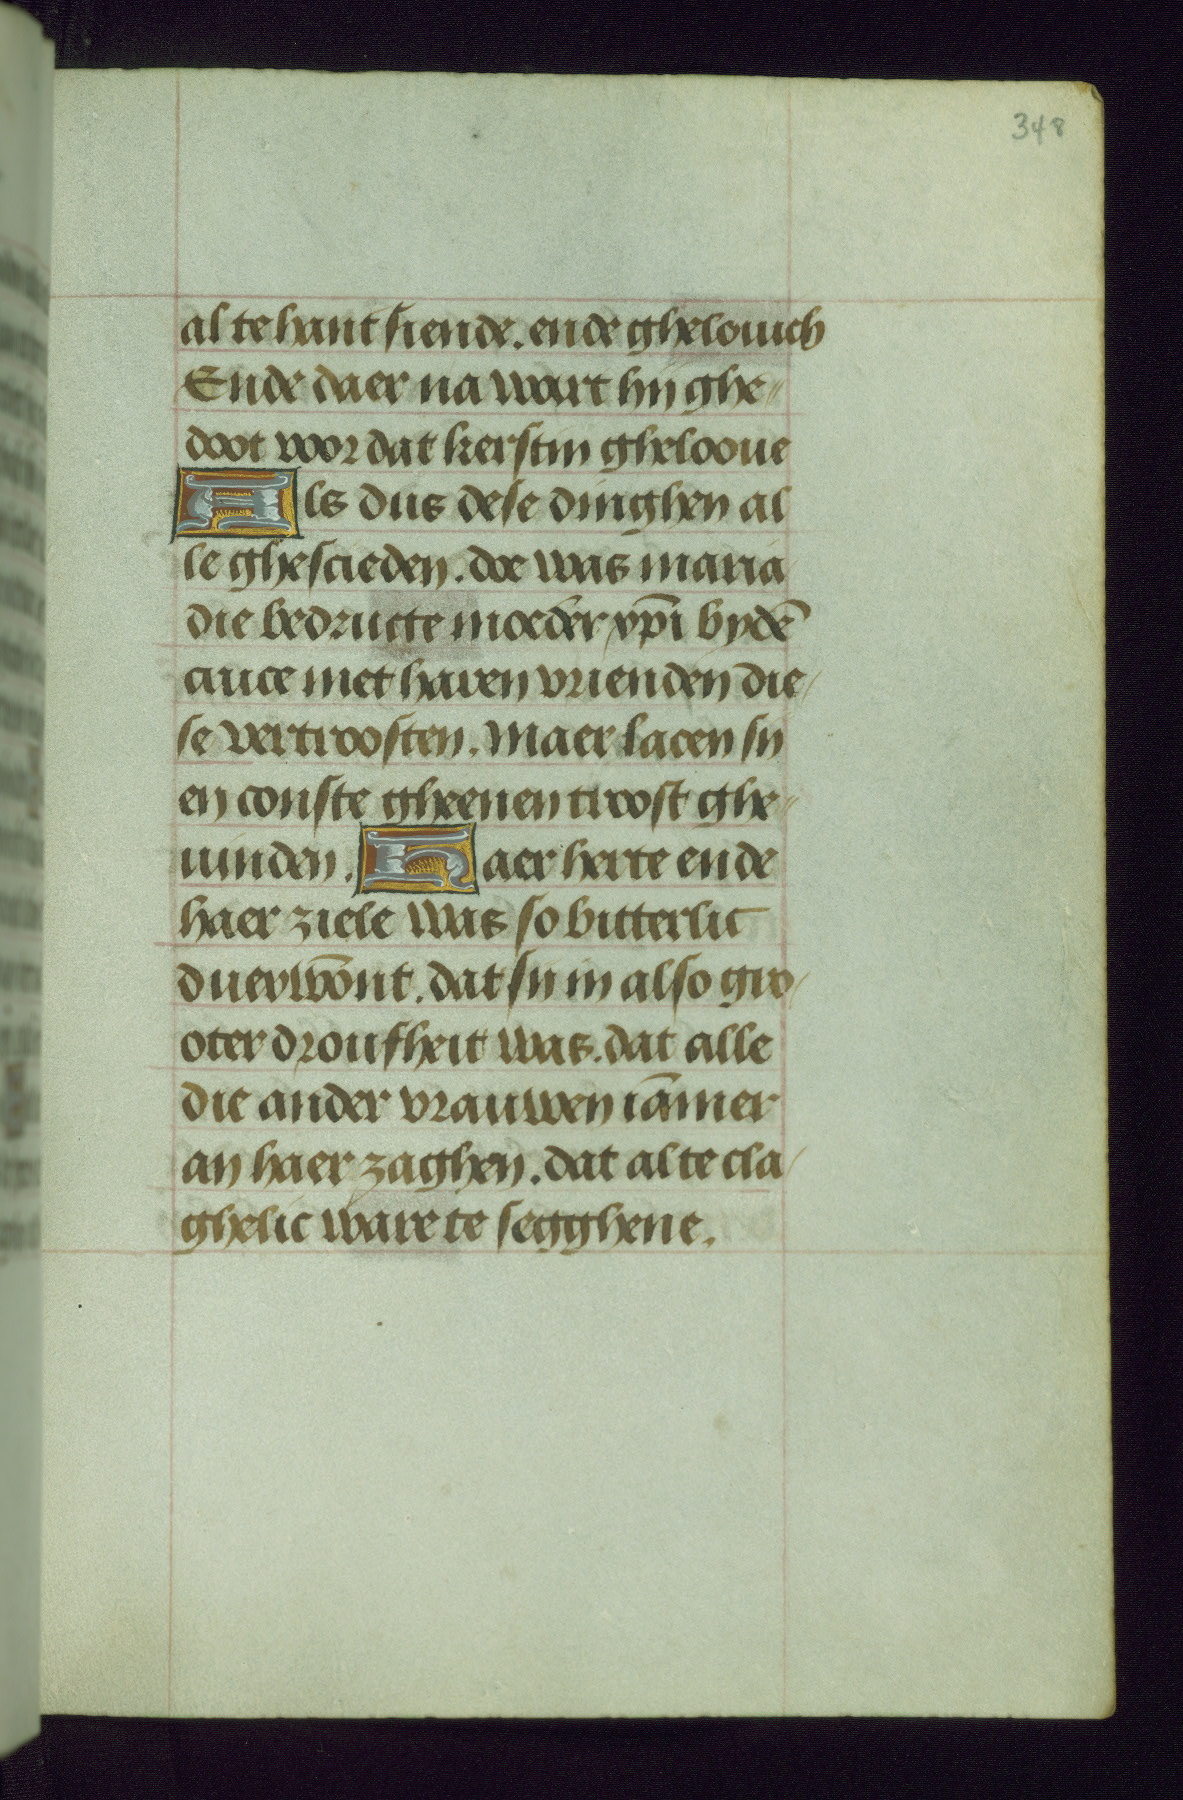 348
al te hant siende. ende ghelouich
Ende daer na wart hij ghe⸗
doot voor dat kerstin ghelooue
Als dus dese dinghen al
le ghescieden. doe was maria
die bedructe moeder xp̄i by dē
cruce met haren vrienden die⸗
se vertroosten. Maer lacen sij
en conste gheenen troost ghe⸗
uinden. Haer herte ende
haer ziele was so bitterlic
duerwōnt. dat sij in also gro⸗
oter droufheit was. dat alle
die ander vrauwen iāmer
an haer zaghen. dat al te cla⸗
ghelic ware te segghene.